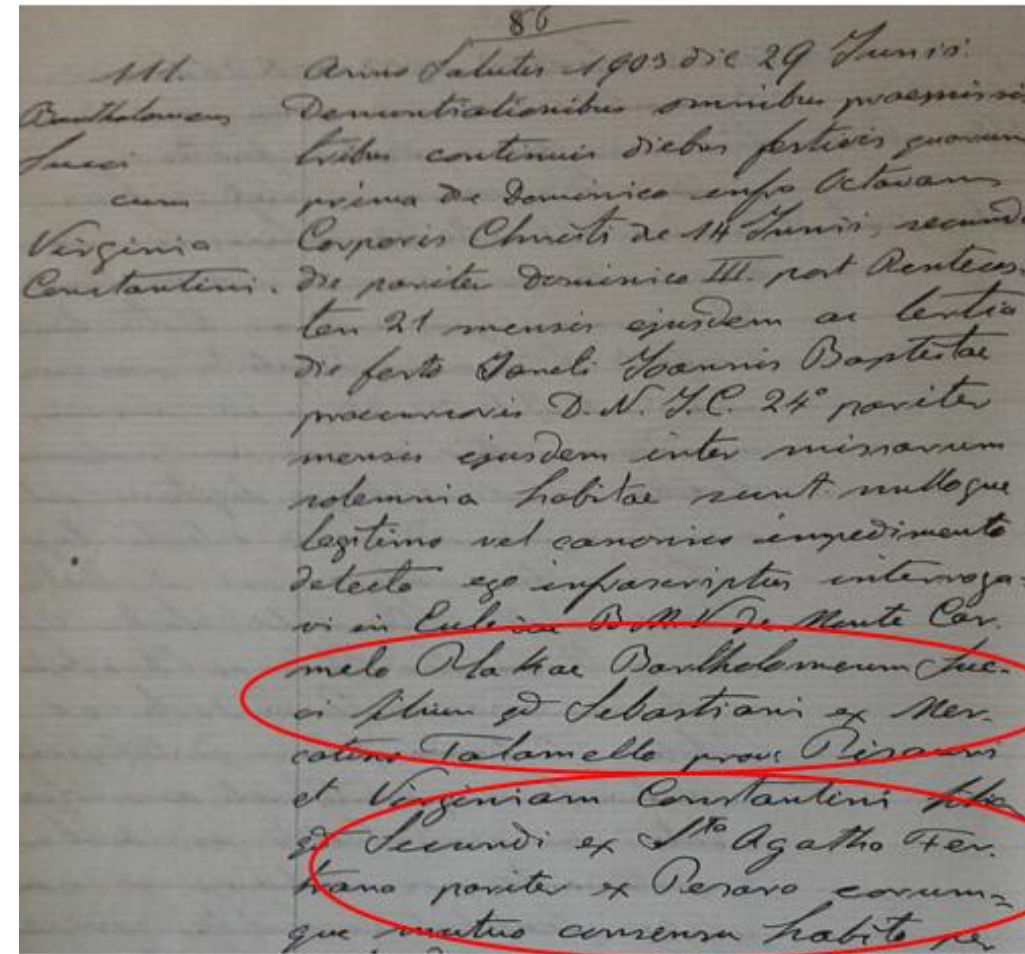 86
111.
Bartholomeus
Succi
cum
Virginia
Constantini.
Anno Salutis 1903 die 29 Junii.
Denuntiationibus omnibus praemissis
tribus continuis diebus festivis quarum
prima die Dominica infra Octavam
Corporis Christi die 14 Junii, secunda
die pariter Dominica III. post Pentecos-
ten 21 mensis ejusdem ac tertia
die festo Sancti Joannis Baptistae
praecursoris D. N. J. C. 24° pariter
mensis ejusdem inter missarum
solemnia habitae sunt nulloque
legitimo vel canonico impedimento
detecto ego infrascriptus interroga-
vi in Ecclesiae B. M. V. de Monte Car-
melo Bartholomeum Suc-
ci filium qd Sebastiani ex Mer-
catino Talamello prov: Pisauri
et Virginiam Constantini filia
qd Secundi ex Sta Agatha Fer-
trana pariter ex Pesaro eorum-
que mutuo consensu habito per